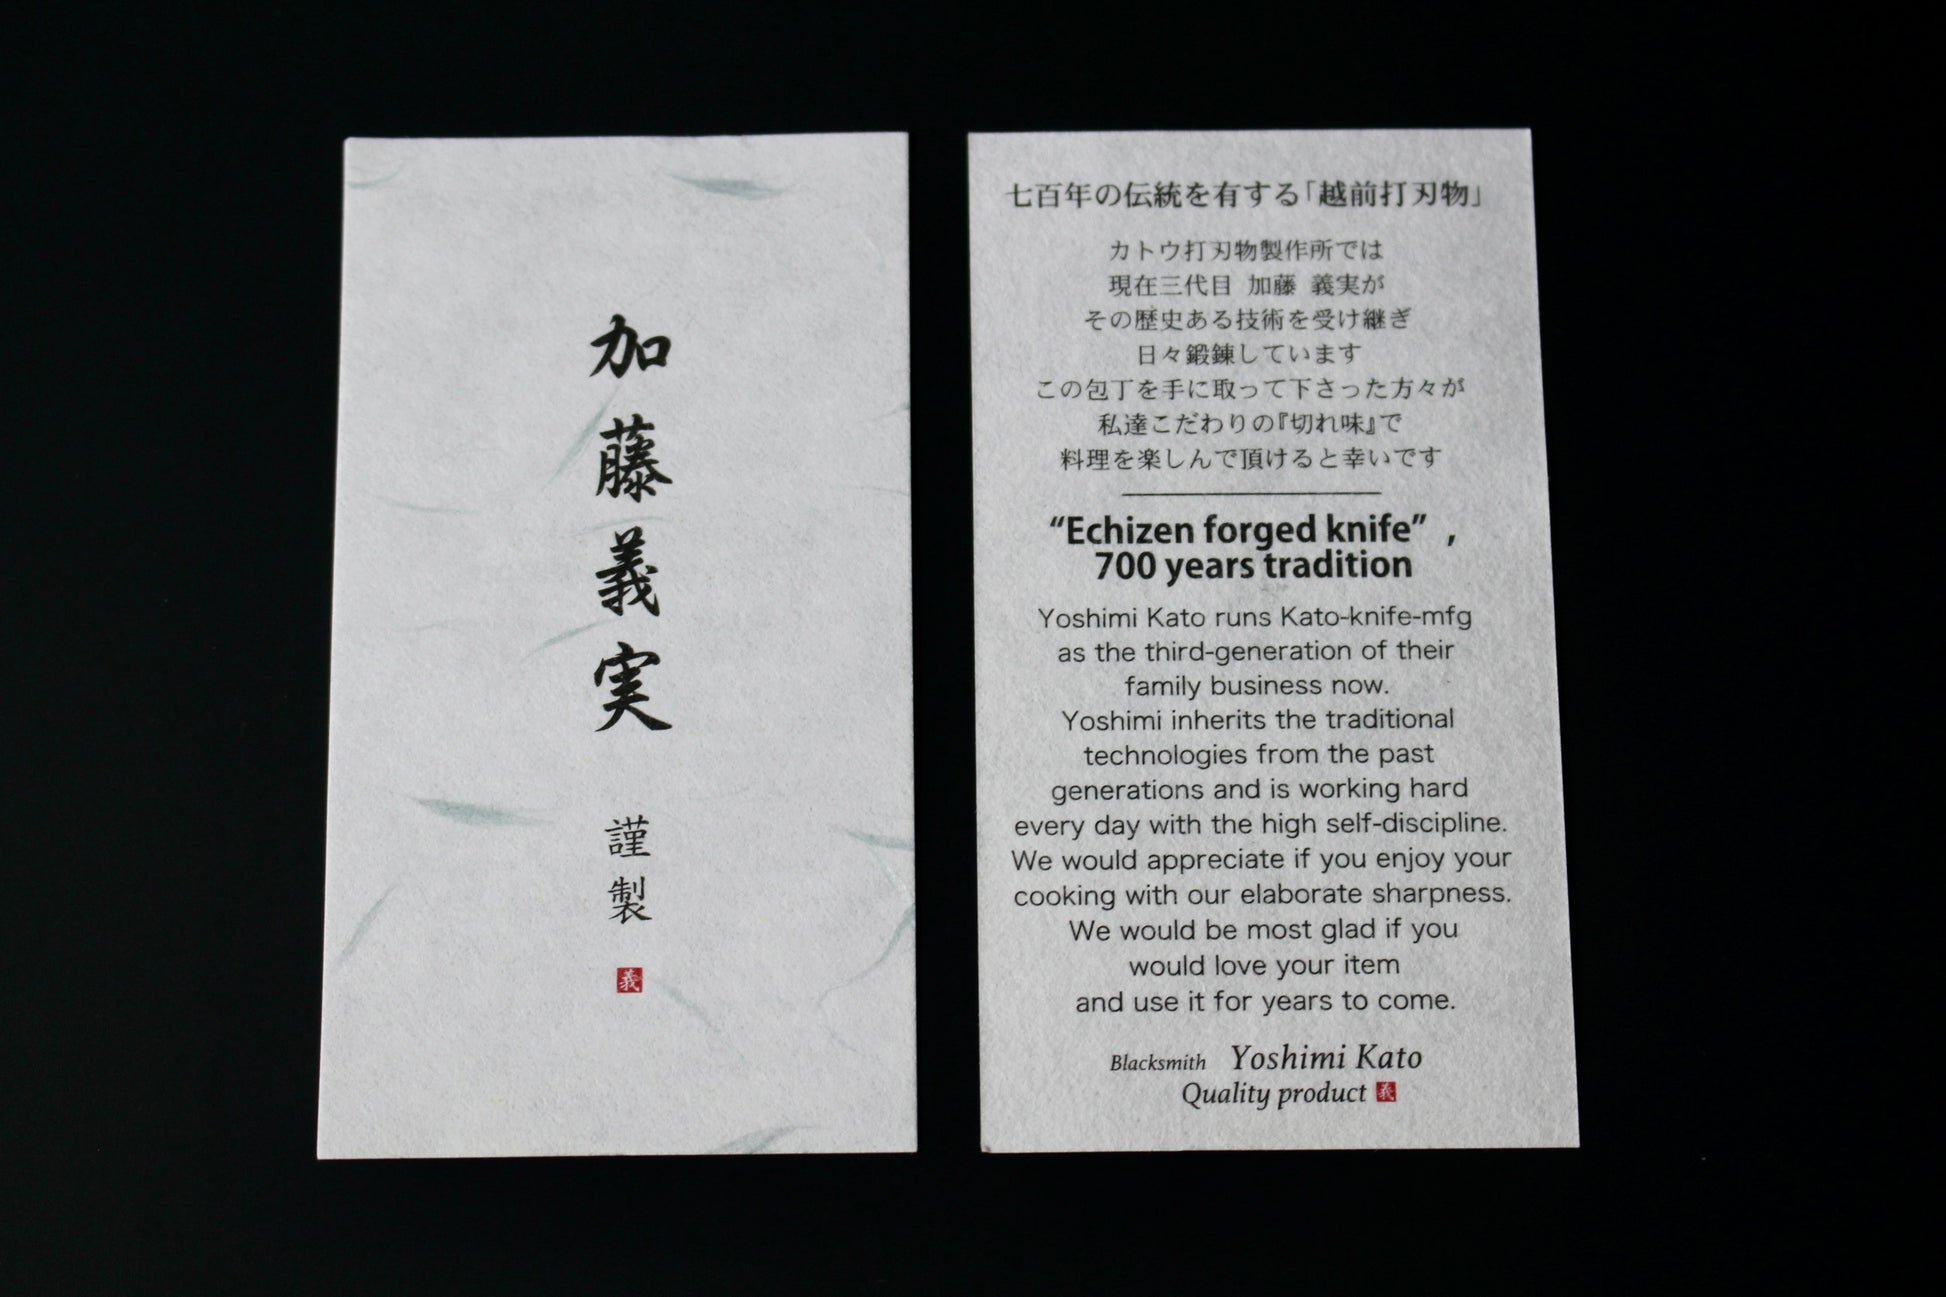 加藤義実
謹製
義
七百年の伝統を有する「越前打刃物」
カトウ打刃物製作所では
現在三代目 加藤 義実が
その歴史ある技術を受け継ぎ
日々鍛錬しています
この包丁を手に取って下さった方々が
私達こだわりの『切れ味』で
料理を楽しんで頂けると幸いです
“Echizen forged knife” ,
700 years tradition
Yoshimi Kato runs Kato-knife-mfg
as the third-generation of their
family business now.
Yoshimi inherits the traditional
technologies from the past
generations and is working hard
every day with the high self-discipline.
We would appreciate if you enjoy your
cooking with our elaborate sharpness.
We would be most glad if you
would love your item
and use it for years to come.
Blacksmith Yoshimi Kato
Quality product 義